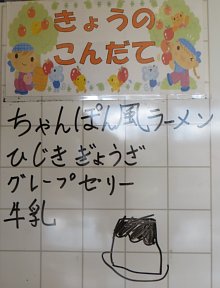 きょうの
こんだて
ちゃんぽん風ラーメン
ひじきぎょうざ
グレープゼリー
牛乳